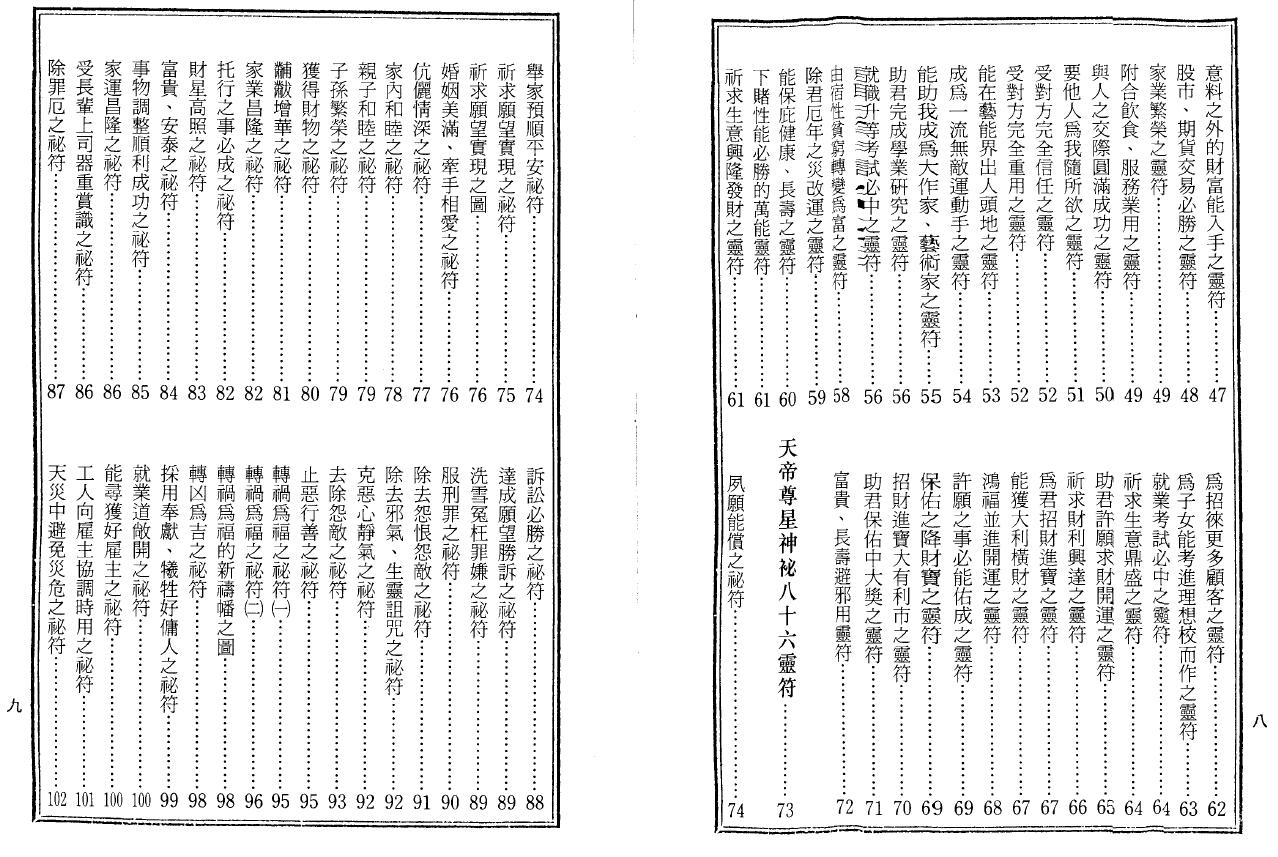 意料之外的財富能入手之靈符⋯⋯47
股市、期貨交易必勝之靈符⋯⋯48
家業繁榮之靈符⋯⋯49
附合飲食、服務業用之靈符⋯⋯49
與人之交際圓滿成功之靈符⋯⋯50
要他人爲我隨所欲之靈符⋯⋯51
受對方完全信任之靈符⋯⋯52
受對方完全重用之靈符⋯⋯52
能在藝能界出人頭地之靈符⋯⋯53
成爲一流無敵運動手之靈符⋯⋯54
能助我成爲大作家、藝術家之靈符⋯⋯55
助君完成學業研究之靈符⋯⋯56
就職升等考試必中之靈符⋯⋯56
由宿性貧窮轉變爲富之靈符⋯⋯58
除君厄年之災改運之靈符⋯⋯59
能保庇健康、長壽之靈符⋯⋯60
下賭性能必勝的萬能靈符⋯⋯61
祈求生意興隆發財之靈符⋯⋯61
爲招徠更多顧客之靈符⋯⋯62
爲子女能考進理想校而作之靈符⋯⋯63
就業考試必中之靈符⋯⋯64
祈求生意鼎盛之靈符⋯⋯64
助君許願求財開運之靈符⋯⋯65
祈求財利興達之靈符⋯⋯66
爲君招財進寶之靈符⋯⋯67
能獲大利橫財之靈符⋯⋯67
鴻福並進開運之靈符⋯⋯68
許願之事必能佑成之靈符⋯⋯69
保佑之降財寶之靈符⋯⋯69
招財進寶大有利市之靈符⋯⋯70
助君保佑中大獎之靈符⋯⋯71
富貴、長壽避邪用靈符⋯⋯72
天帝尊星神祕八十六靈符⋯⋯73
夙願能償之祕符⋯⋯74
八
舉家預順平安祕符⋯⋯74
祈求願望實現之祕符⋯⋯75
祈求願望實現之圖⋯⋯76
婚姻美滿、牽手相愛之祕符⋯⋯76
伉儷情深之祕符⋯⋯77
家內和睦之祕符⋯⋯78
親子和睦之祕符⋯⋯79
子孫繁榮之祕符⋯⋯79
獲得財物之祕符⋯⋯80
黼黻增華之祕符⋯⋯81
家業昌隆之祕符⋯⋯82
托行之事必成之祕符⋯⋯82
財星高照之祕符⋯⋯83
富貴、安泰之祕符⋯⋯84
事物調整順利成功之祕符⋯⋯85
家運昌隆之祕符⋯⋯86
受長輩上司器重賞識之祕符⋯⋯86
除罪厄之祕符⋯⋯87
訴訟必勝之祕符⋯⋯88
達成願望勝訴之祕符⋯⋯89
洗雪冤枉罪嫌之祕符⋯⋯89
服刑罪之祕符⋯⋯90
除去怨恨怨敵之祕符⋯⋯91
除去邪氣、生靈詛咒之祕符⋯⋯92
克惡心靜氣之祕符⋯⋯92
去除怨敵之祕符⋯⋯93
止惡行善之祕符⋯⋯95
轉禍爲福之祕符㈠⋯⋯95
轉禍爲福之祕符㈡⋯⋯96
轉禍爲福的新禱幡之圖⋯⋯98
轉凶爲吉之祕符⋯⋯98
採用奉獻、犧牲好傭人之祕符⋯⋯99
就業道敞開之祕符⋯⋯100
能尋獲好雇主之祕符⋯⋯100
工人向雇主協調時用之祕符⋯⋯101
天災中避免災危之祕符⋯⋯102
九